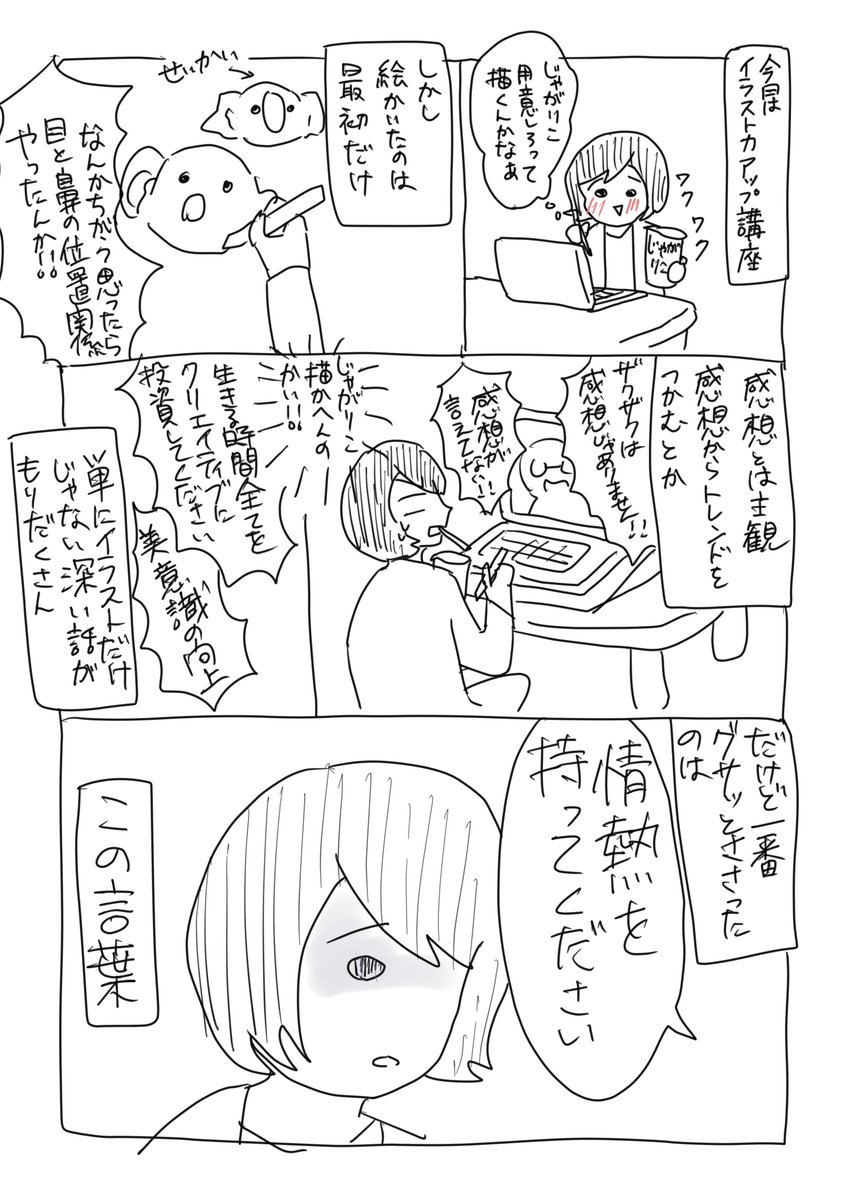 今日は
イラスト力アップ講座
じゃがりこ
用意しろって
描くんかなぁ
ワクワク
ワクワク
じゃがりこ
しかし
絵かいたのは
最初だけ
せいかい
なんかちがう思ったら
目と鼻の位置関係
やったんか!!
感想とは主観
感想からトレンドを
つかむとか
ザクザクは
感想じゃありません!!
感想が
言えてない!!
じゃがりこ
描かへんの
かい!!
生きる時間全てを
クリエイティブに
投資してください
美意識の向上
単にイラストだけ
じゃない深い話が
もりだくさん
だけど一番
グサッとささった
のは
情熱を
持ってください
この言葉